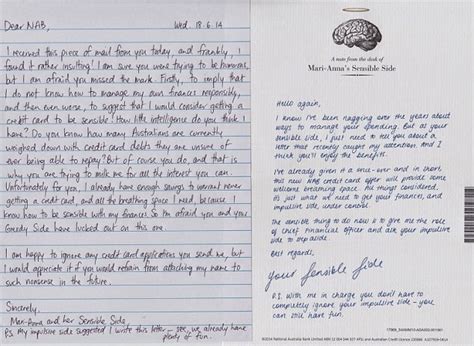 Dear NAB,
Wed. 18.6.14
I received this piece of mail from you today, and frankly, I
found it rather insulting! I am sure you were trying to be humorous,
but I am afraid you missed the mark. Firstly, to imply that
I do not know how to manage my own finances responsibly,
and then even worse, to suggest that I would consider getting a
credit card to be sensible! How little intelligence do you think I
have? Do you know how many Australians are currently
weighed down with credit card debts they are unsure of
ever being able to repay? But of course you do, and that is
why you are trying to milk me for all the interest you can.
Unfortunately for you, I already have enough savings to warrant never
getting a credit card, and all the breathing space I need, because I
know how to be sensible with my finances. So I'm afraid you and your
Greedy Side have lucked out on this one.
I am happy to ignore any credit card applications you send me, but
I would appreciate it if you would refrain from attaching my name to
such nonsense in the future.
Sincerely,
Mari-Anna and her Sensible Side.
P.S. My impulsive side suggested I write this letter - see, we already have
plenty of fun.
A note from the desk of
Mari-Anna's Sensible Side
Hello again,
I know I've been nagging over the years about
ways to manage your spending. But as your
sensible side, I just need to tell you about a
letter that recently caught my attention. And I
think you'll enjoy the benefits.
I've already given it a once-over and in short
this new NAB credit card offer will provide some
welcome breathing space. All things considered,
it's just what we need to get your finances, and
impulsive side, under control.
The sensible thing to do now is to give me the role
of Chief Financial Officer and ask your impulsive
side to
Best regards,
Your Sensible Side
P.S. With me in charge you don't have to
completely ignore your impulsive side - you
can still have fun.
©2014 National Australia Bank Limited ABN 12 004 044 937 AFSL and Australian Credit Licence 230686